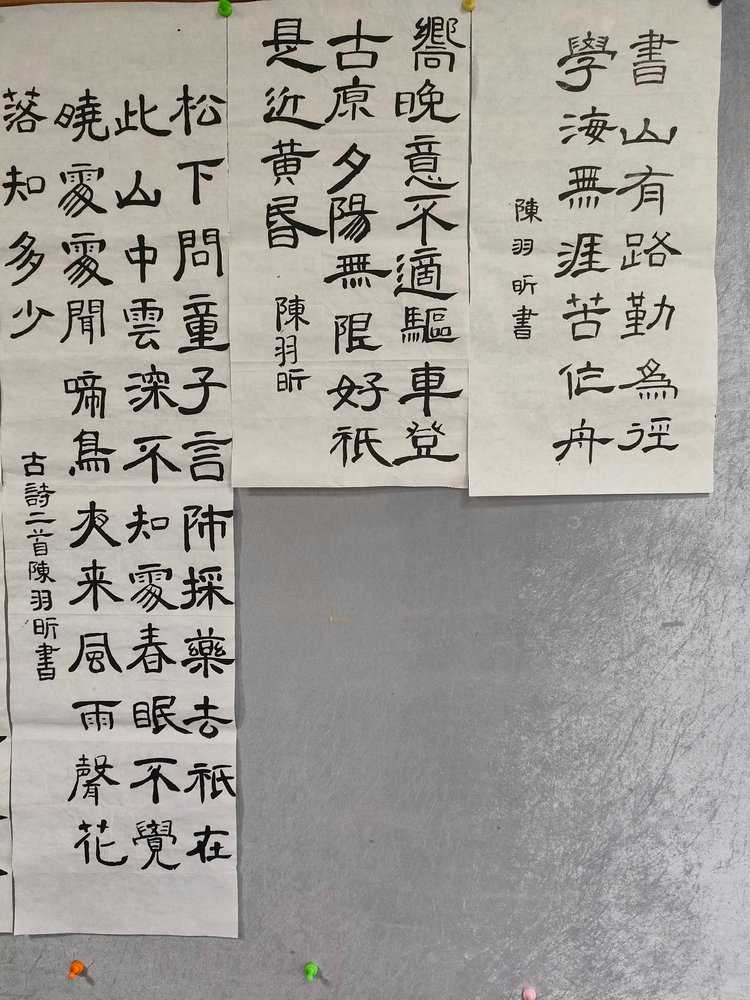 書山有路勤為徑
學海無涯苦作舟
陳羽昕書
嚮晚意不適驅車登
古原夕陽無限好祇
是近黄昏
陳羽昕
松下問童子言師採藥去祇在
此山中雲深不知處春眠不覺
曉處處聞啼鳥夜来風雨聲花
落知多少
古詩二首陳羽昕書